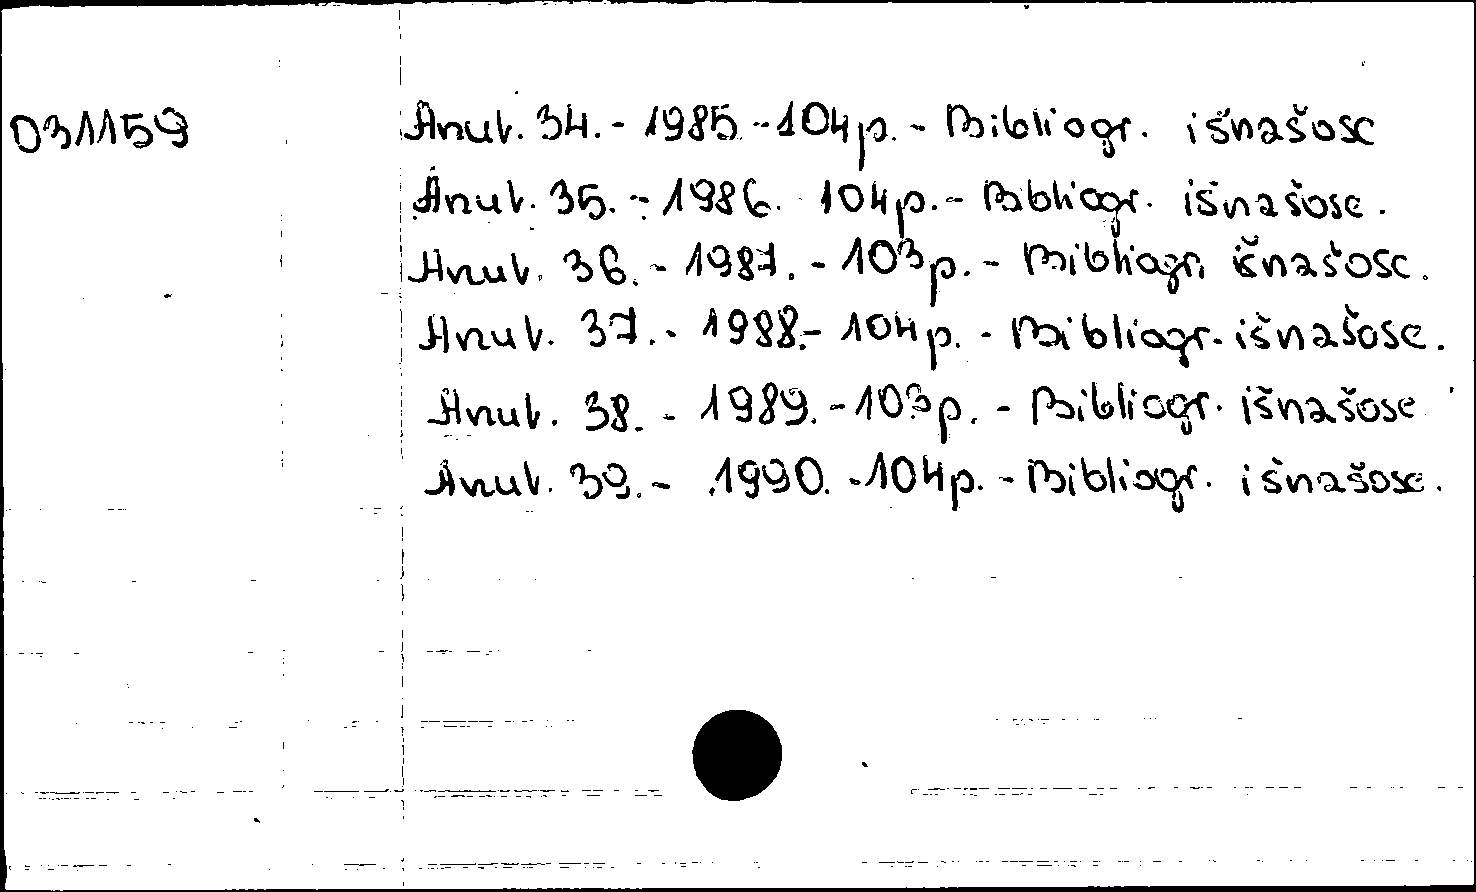 031159 Anul. 34. - 1985 - 104 p. - Bibliogr. išnašose
Anul. 35. - 1986. 104 p. - Bibliogr. išnašose.
Anul. 36. - 1987. - 103 p. - Bibliogr. išnašose.
Anul. 37. - 1988. - 104 p. - Bibliogr. išnašose.
Anul. 38. - 1989. - 103 p. - Bibliogr. išnašose
Anul. 39. - 1990. - 104 p. - Bibliogr. išnašose.